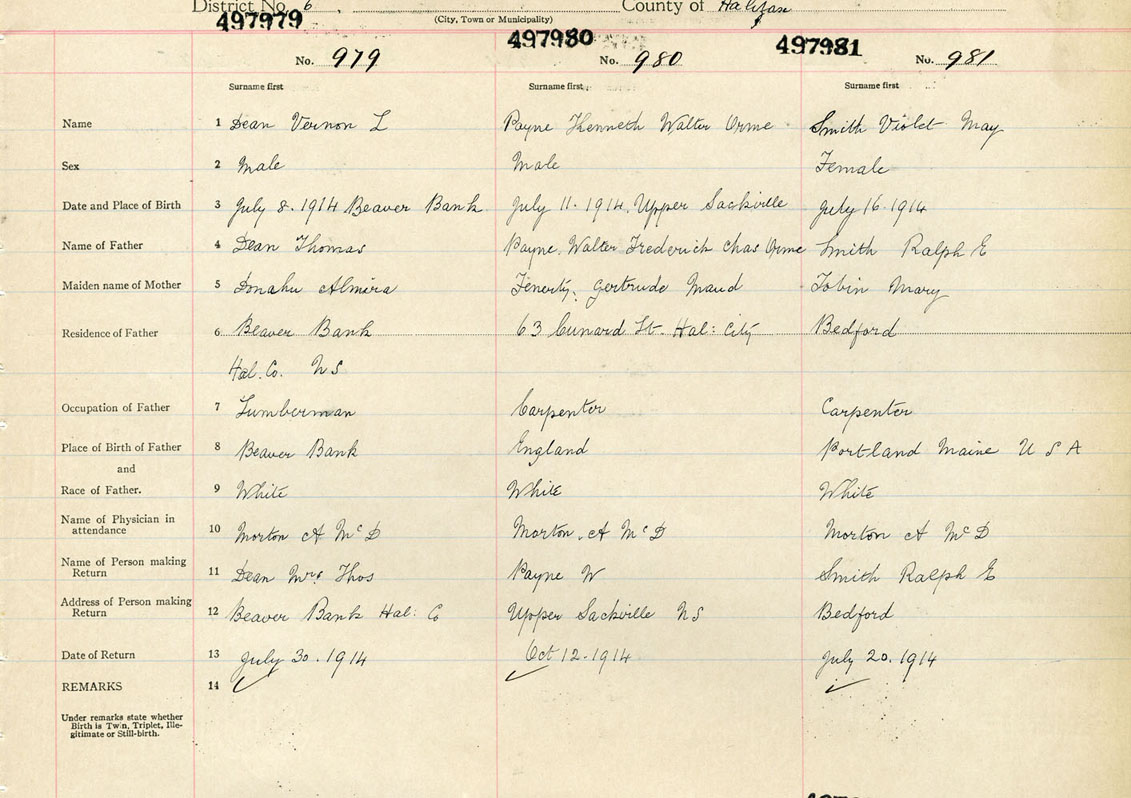 District No. 6 County of Halifax
(City, Town or Municipality)
497979 497980 497981
No. 979 No. 980 No. 981
Surname first Surname first Surname first
Name 1 Dean Vernon L Payne Kenneth Walter Orme Smith Violet May
Sex 2 Male Male Female
Date and Place of Birth 3 July 8. 1914 Beaver Bank July 11. 1914. Upper Sackville July 16. 1914
Name of Father 4 Dean Thomas Payne. Walter Frederick Chas Orme Smith Ralph E
Maiden name of Mother 5 Donahu Almira Fenerty, Gertrude Maud Tobin Mary
Residence of Father 6 Beaver Bank 63 Cunard St. Hal: City Bedford
Hal. Co. N S
Occupation of Father 7 Lumberman Carpenter Carpenter
Place of Birth of Father 8 Beaver Bank England Portland Maine U S A
and
Race of Father. 9 White White White
Name of Physician in attendance 10 Morton A McD Morton. A McD Morton A McD
Name of Person making Return 11 Dean Mrs Thos Payne W Smith Ralph E
Address of Person making Return 12 Beaver Bank Hal: Co Upper Sackville N S Bedford
Date of Return 13 July 30. 1914 Oct 12. 1914 July 20. 1914
REMARKS 14
Under remarks state whether
Birth is Twin, Triplet, Ille-
gitimate or Still-birth.